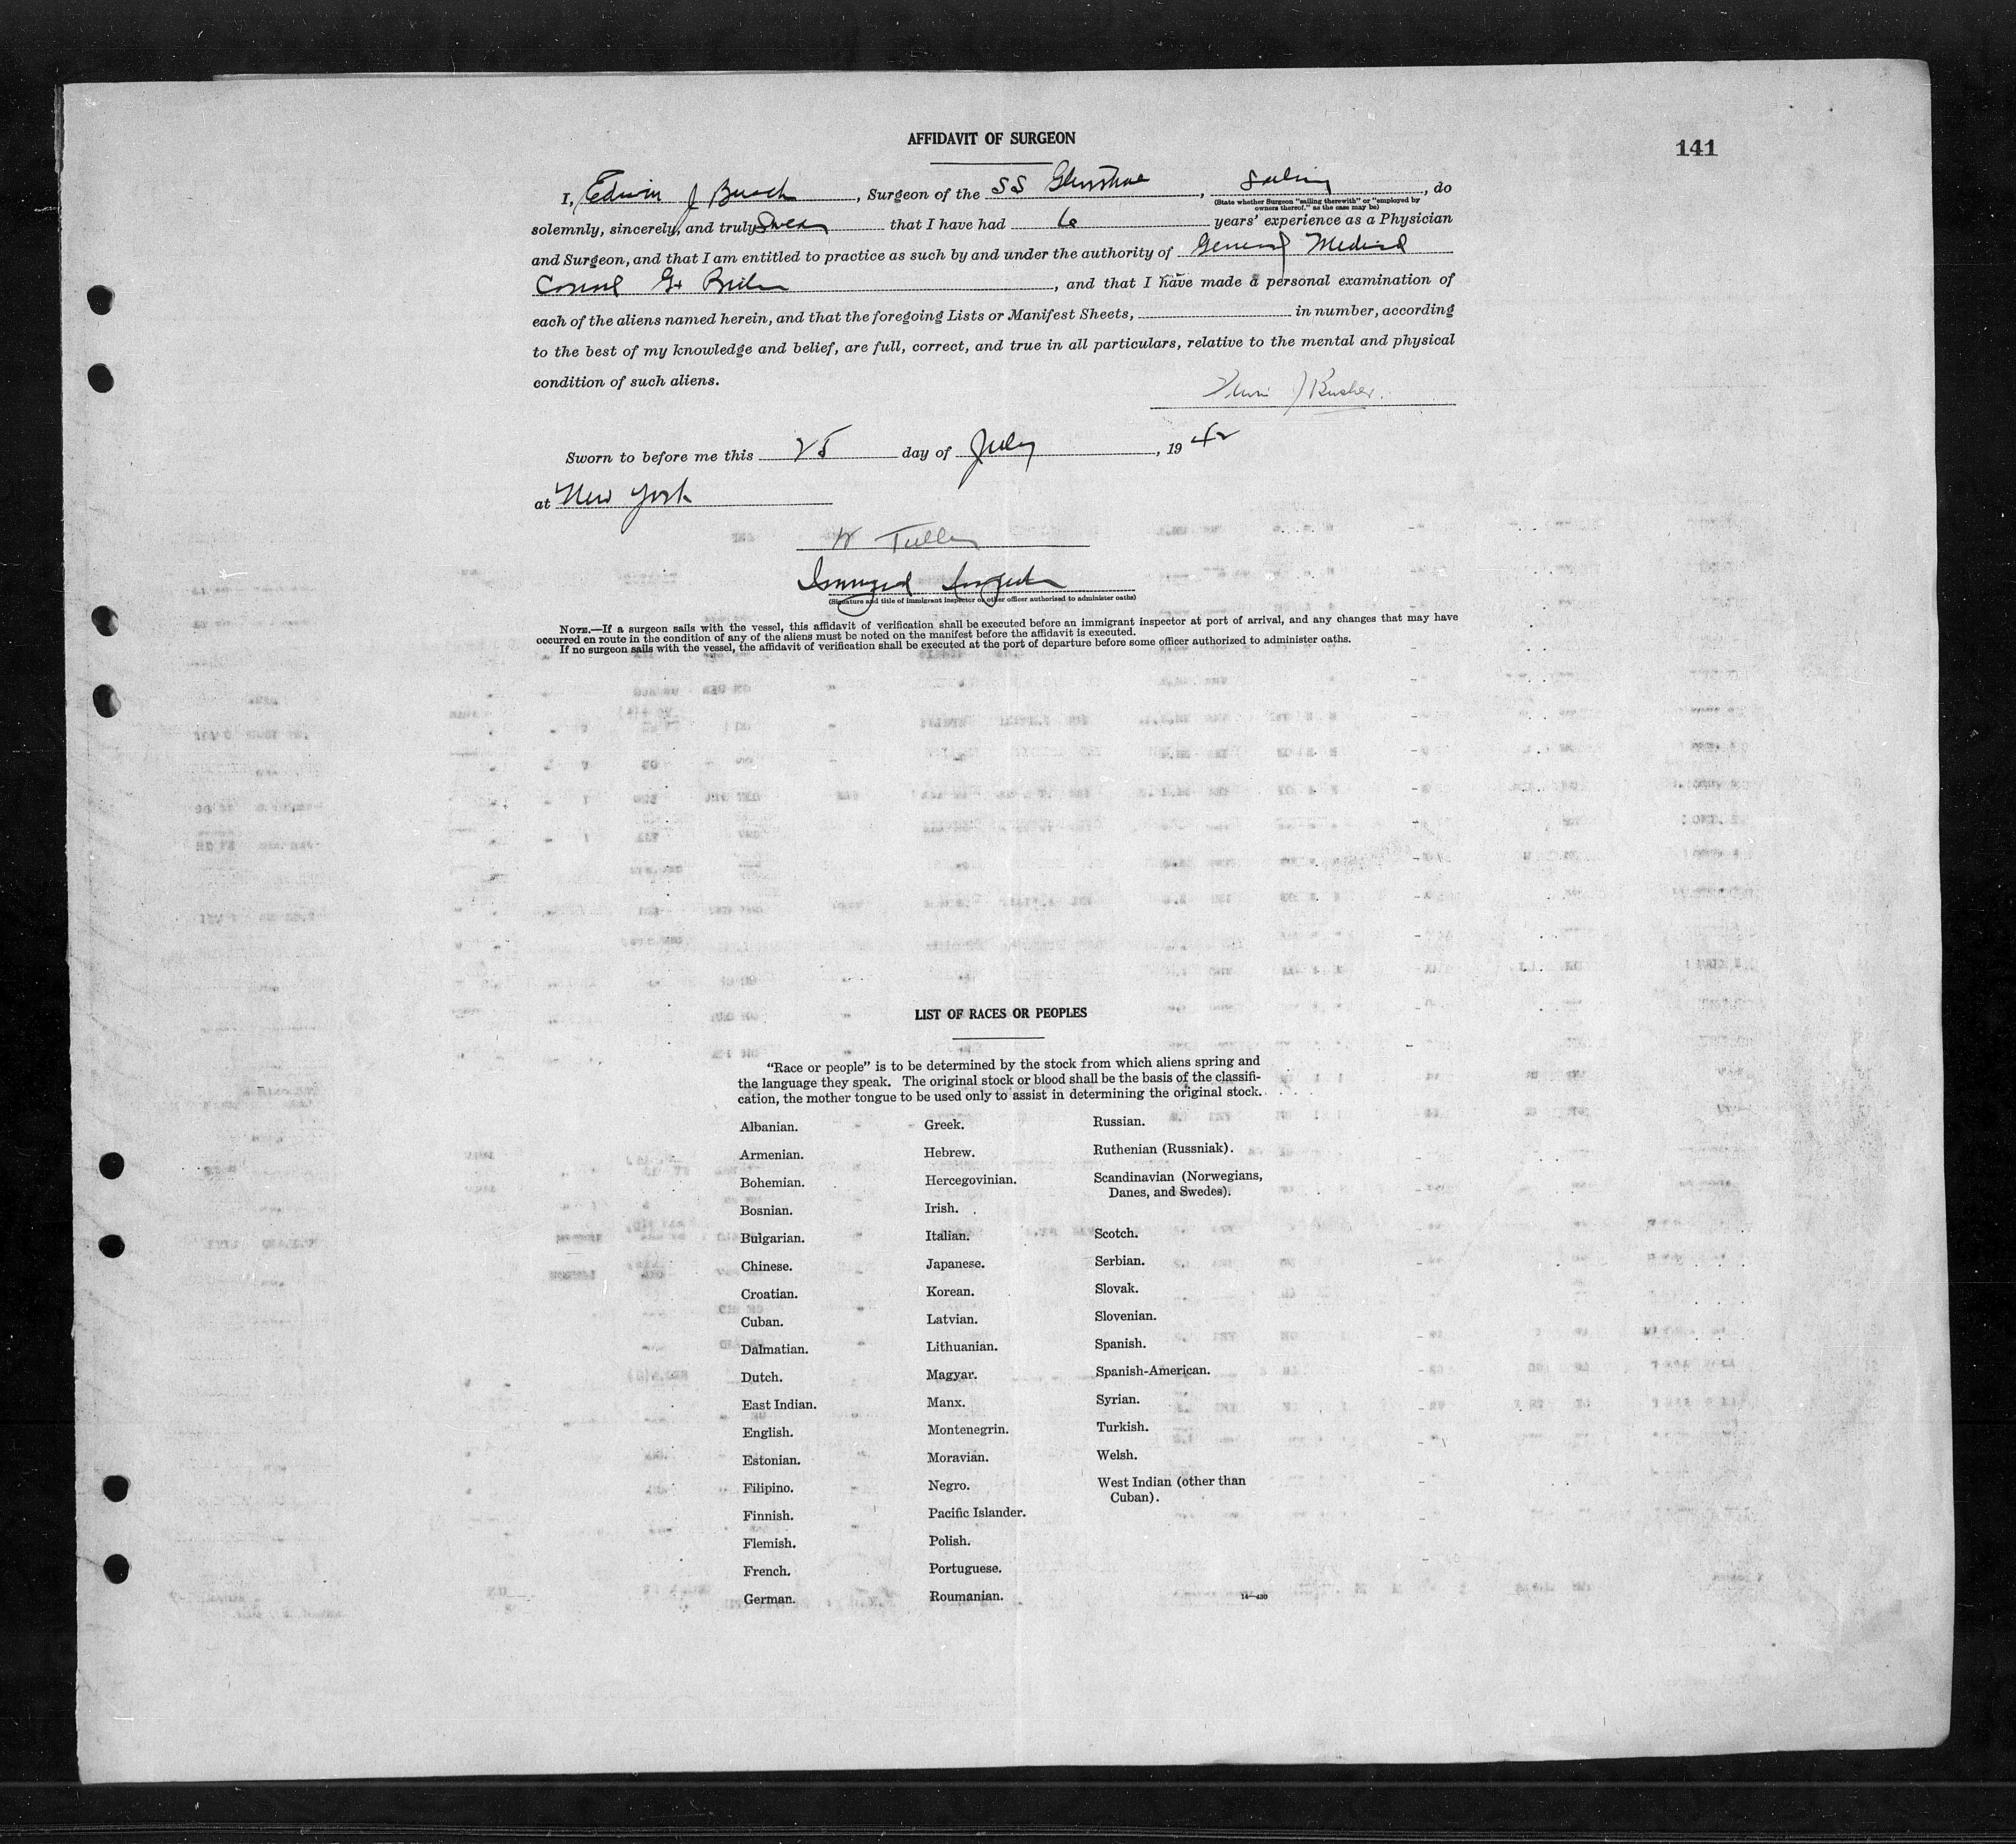 AFFIDAVIT OF SURGEON
141
I, Edwin J , Surgeon of the SS , , do
(State whether Surgeon "sailing therewith" or "employed by
owners thereof," as the case may be)
solemnly, sincerely, and truly Swear that I have had 6 years' experience as a Physician
and Surgeon, and that I am entitled to practice as such by and under the authority of General Medical
, and that I have made a personal examination of
each of the aliens named herein, and that the foregoing Lists or Manifest Sheets, in number, according
to the best of my knowledge and belief, are full, correct, and true in all particulars, relative to the mental and physical
condition of such aliens.
Sworn to before me this 25 day of July, 1942
at New York
W Tulley
(Signature and title of immigrant inspector or other officer authorized to administer oaths)
NOTE.—If a surgeon sails with the vessel, this affidavit of verification shall be executed before an immigrant inspector at port of arrival, and any changes that may have
occurred en route in the condition of any of the aliens must be noted on the manifest before the affidavit is executed.
If no surgeon sails with the vessel, the affidavit of verification shall be executed at the port of departure before some officer authorized to administer oaths.
LIST OF RACES OR PEOPLES
"Race or people" is to be determined by the stock from which aliens spring and
the language they speak. The original stock or blood shall be the basis of the classifi-
cation, the mother tongue to be used only to assist in determining the original stock.
Albanian.
Armenian.
Bohemian.
Bosnian.
Bulgarian.
Chinese.
Croatian.
Cuban.
Dalmatian.
Dutch.
East Indian.
English.
Estonian.
Filipino.
Finnish.
Flemish.
French.
German.
Greek.
Hebrew.
Hercegovinian.
Irish.
Italian.
Japanese.
Korean.
Latvian.
Lithuanian.
Magyar.
Manx.
Montenegrin.
Moravian.
Negro.
Pacific Islander.
Polish.
Portuguese.
Roumanian.
Russian.
Ruthenian (Russniak).
Scandinavian (Norwegians,
Danes, and Swedes).
Scotch.
Serbian.
Slovak.
Slovenian.
Spanish.
Spanish-American.
Syrian.
Turkish.
Welsh.
West Indian (other than
Cuban).
14—430